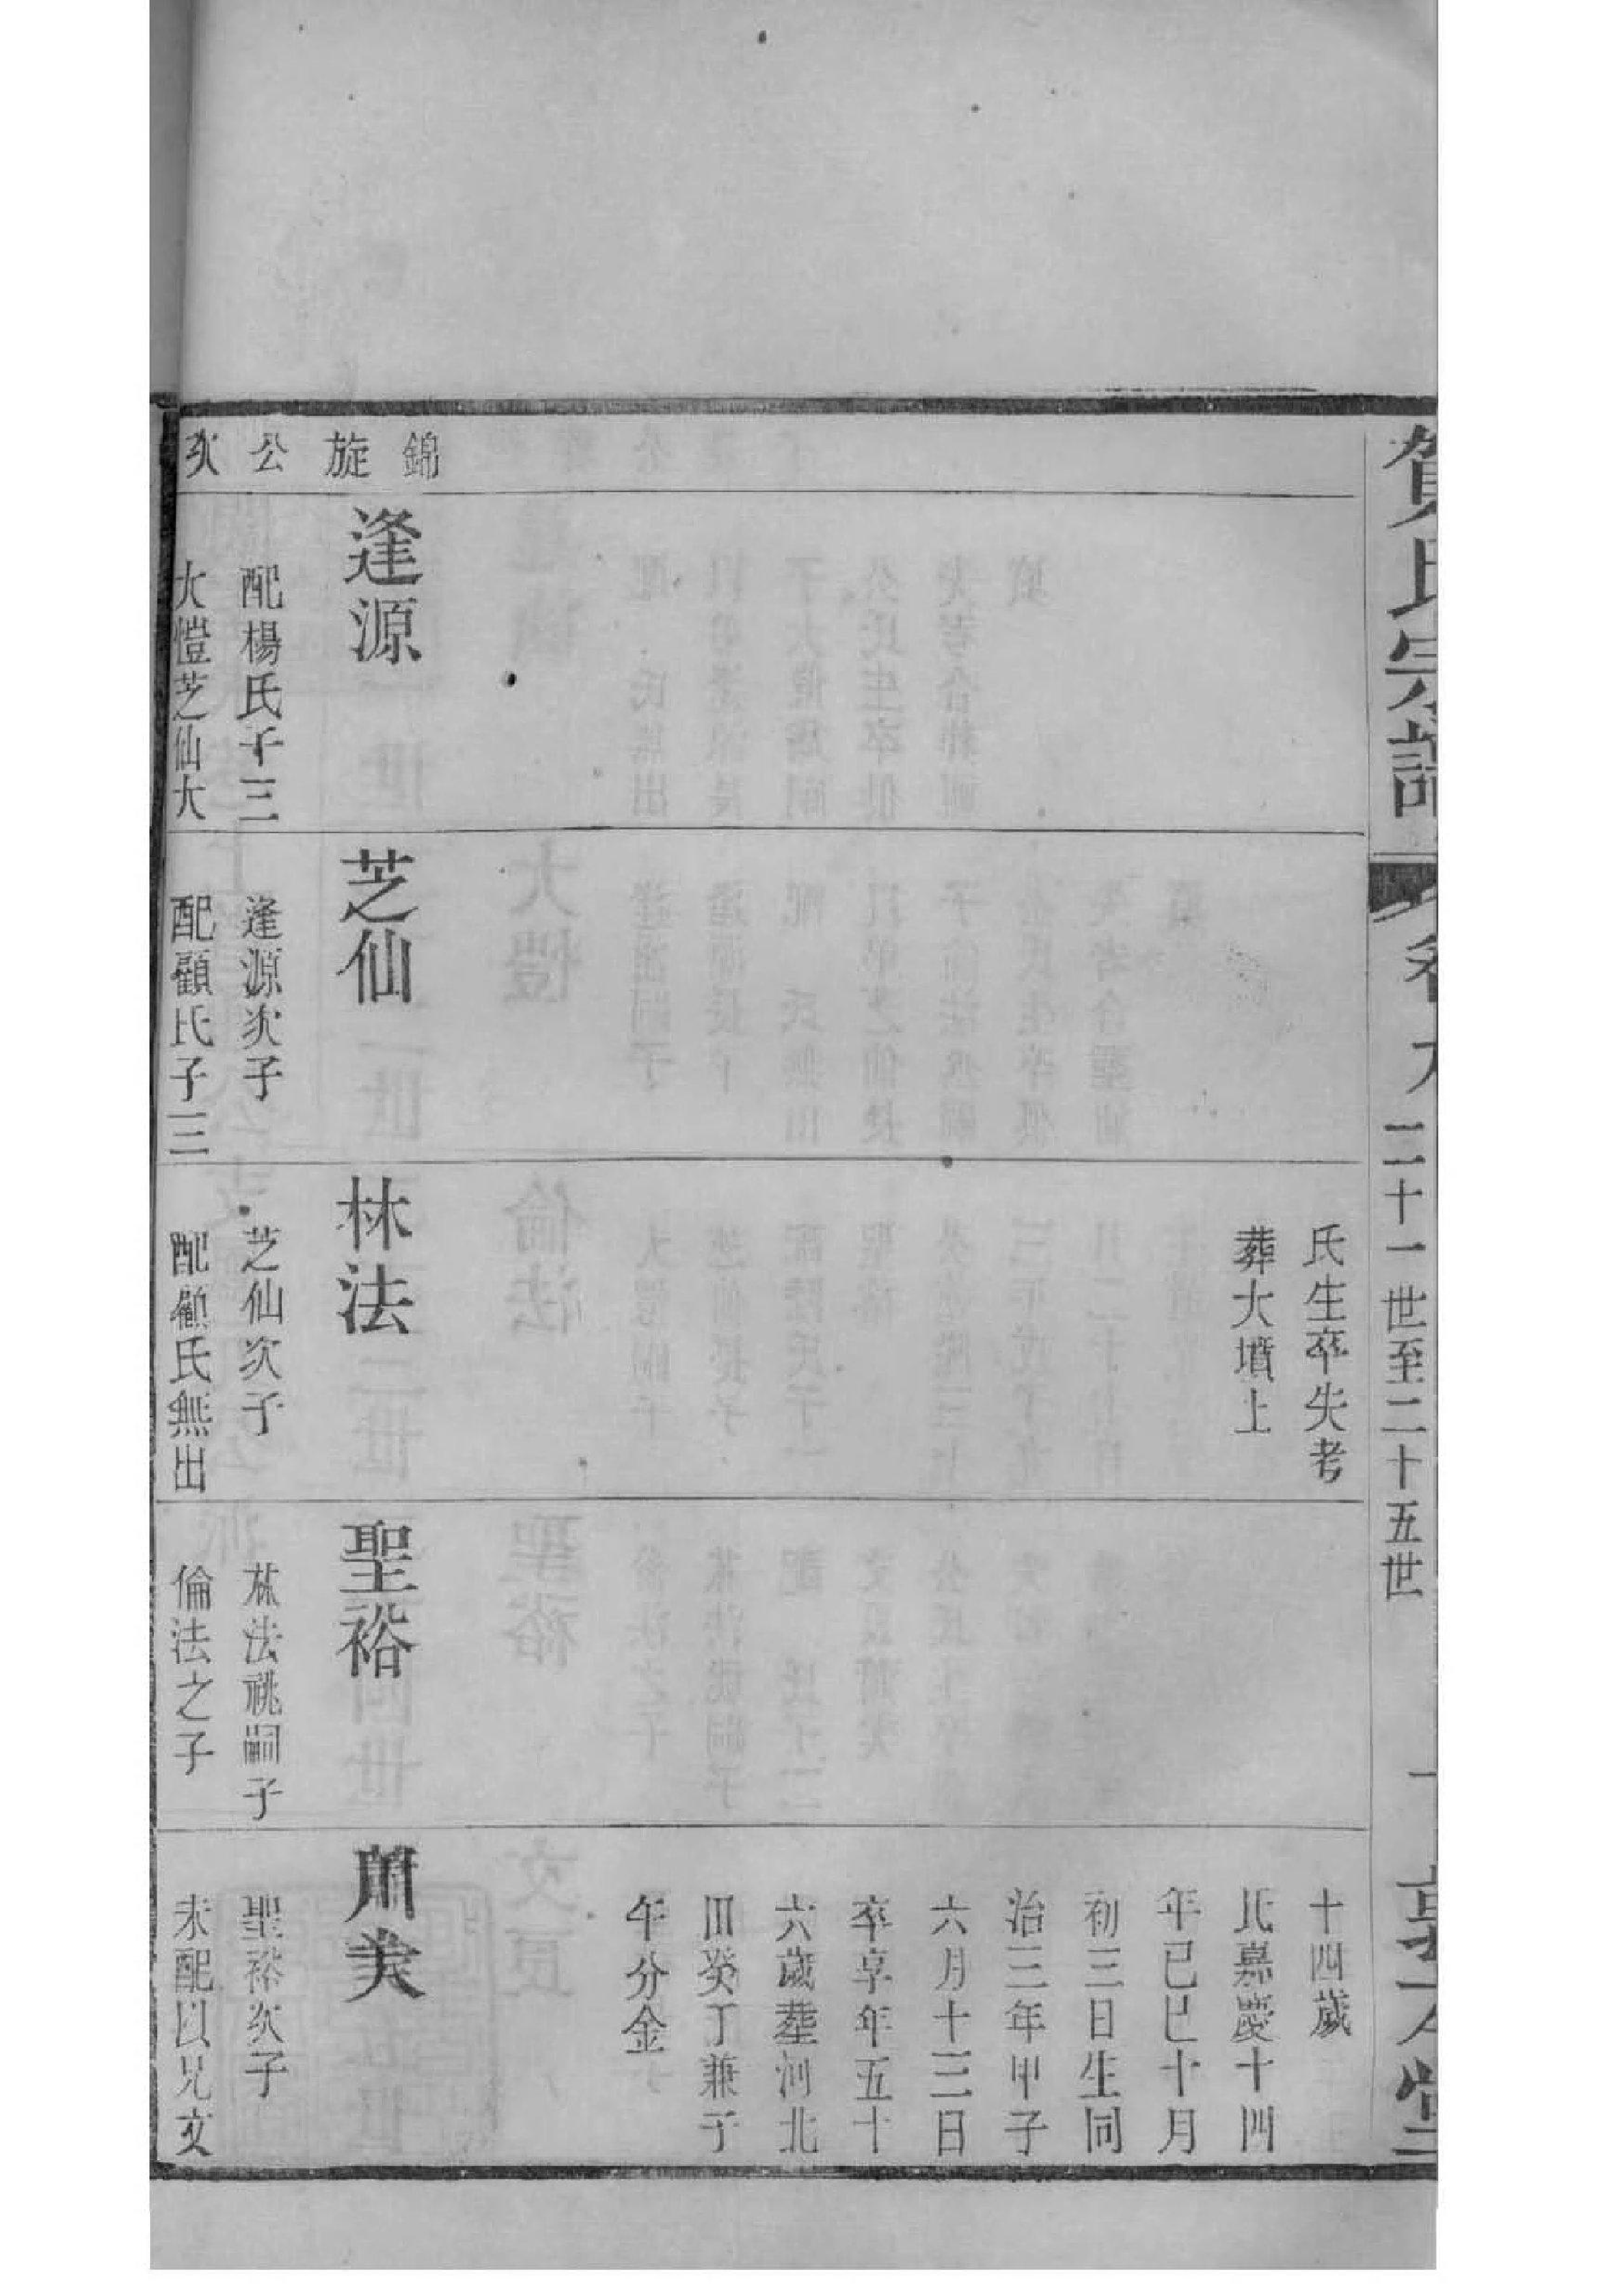 賀氏宗譜
二十一世至二十五世
錦旋公次
逢源
配楊氏子三
大愷芝仙大
芝仙
逢源次子
配顧氏子三
氏生卒失考
葬大墳上
林法
芝仙次子
配顧氏無出
聖裕
林法祧嗣子
倫法之子
十四歲
氏嘉慶十四
年己巳十月
初三日生同
治三年甲子
六月十三日
卒享年五十
六歲葬河北
田癸丁兼子
午分金
肅美
聖裕次子
未配以兄文